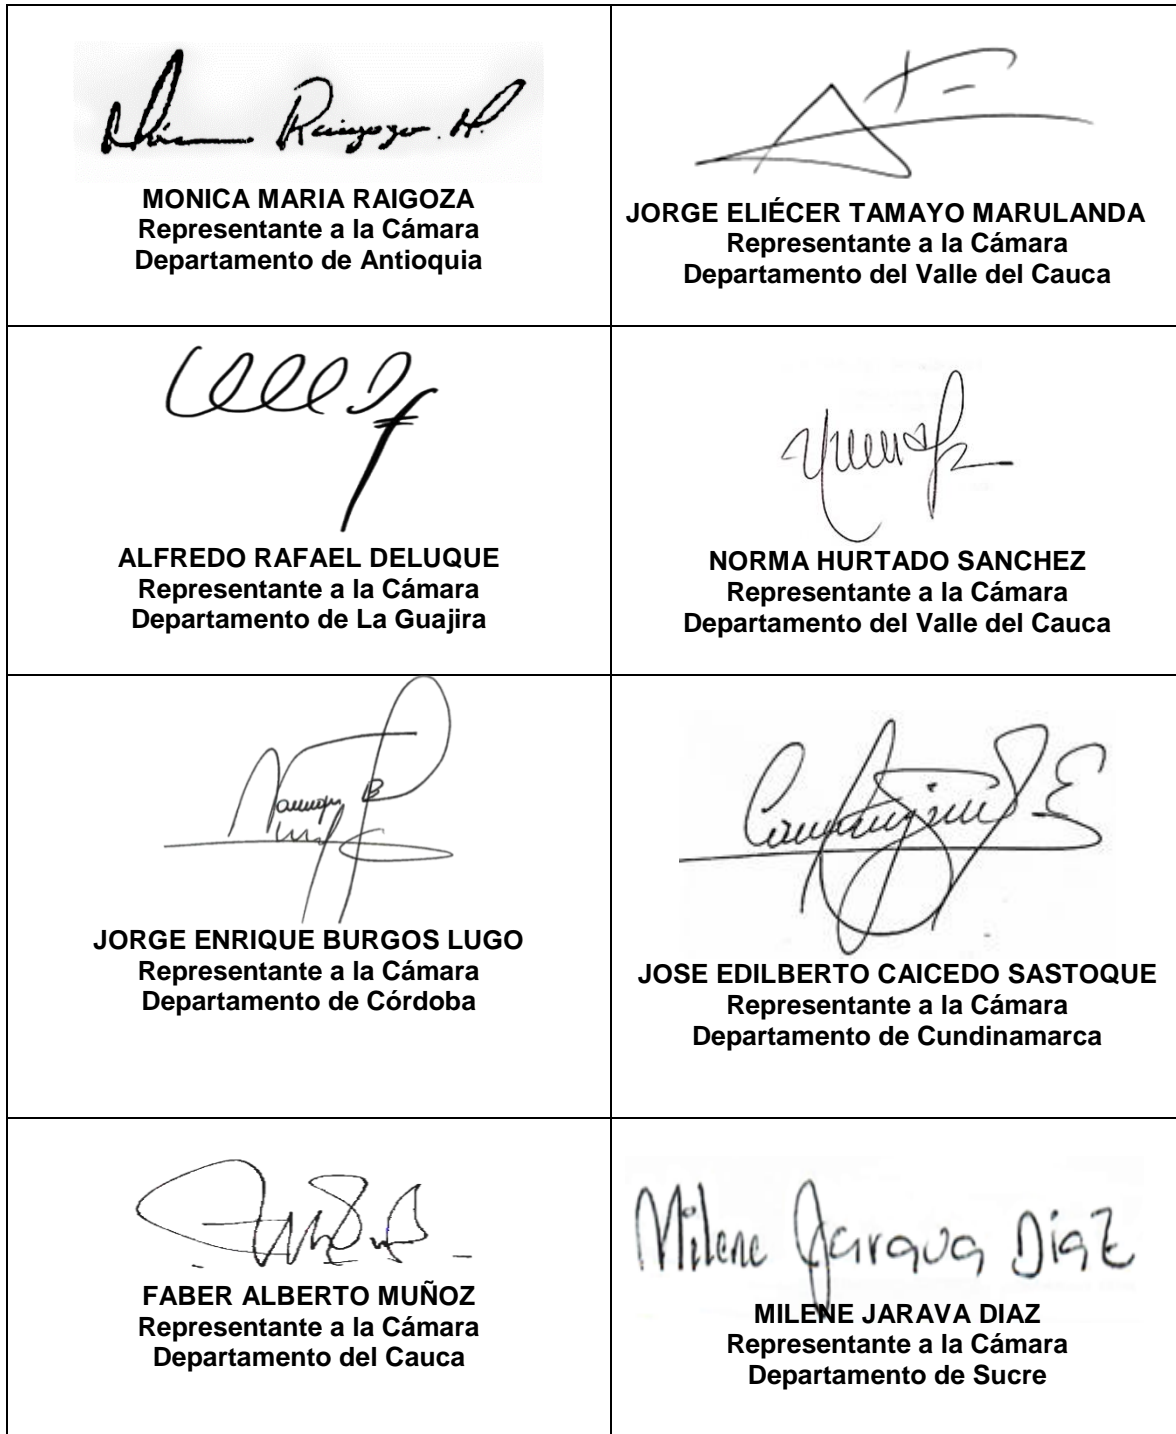 MONICA MARIA RAIGOZA
Representante a la Cámara
Departamento de Antioquia
JORGE ELIÉCER TAMAYO MARULANDA
Representante a la Cámara
Departamento del Valle del Cauca
ALFREDO RAFAEL DELUQUE
Representante a la Cámara
Departamento de La Guajira
NORMA HURTADO SANCHEZ
Representante a la Cámara
Departamento del Valle del Cauca
JORGE ENRIQUE BURGOS LUGO
Representante a la Cámara
Departamento de Córdoba
JOSE EDILBERTO CAICEDO SASTOQUE
Representante a la Cámara
Departamento de Cundinamarca
FABER ALBERTO MUÑOZ
Representante a la Cámara
Departamento del Cauca
Milene Jarava Diaz
MILENE JARAVA DIAZ
Representante a la Cámara
Departamento de Sucre